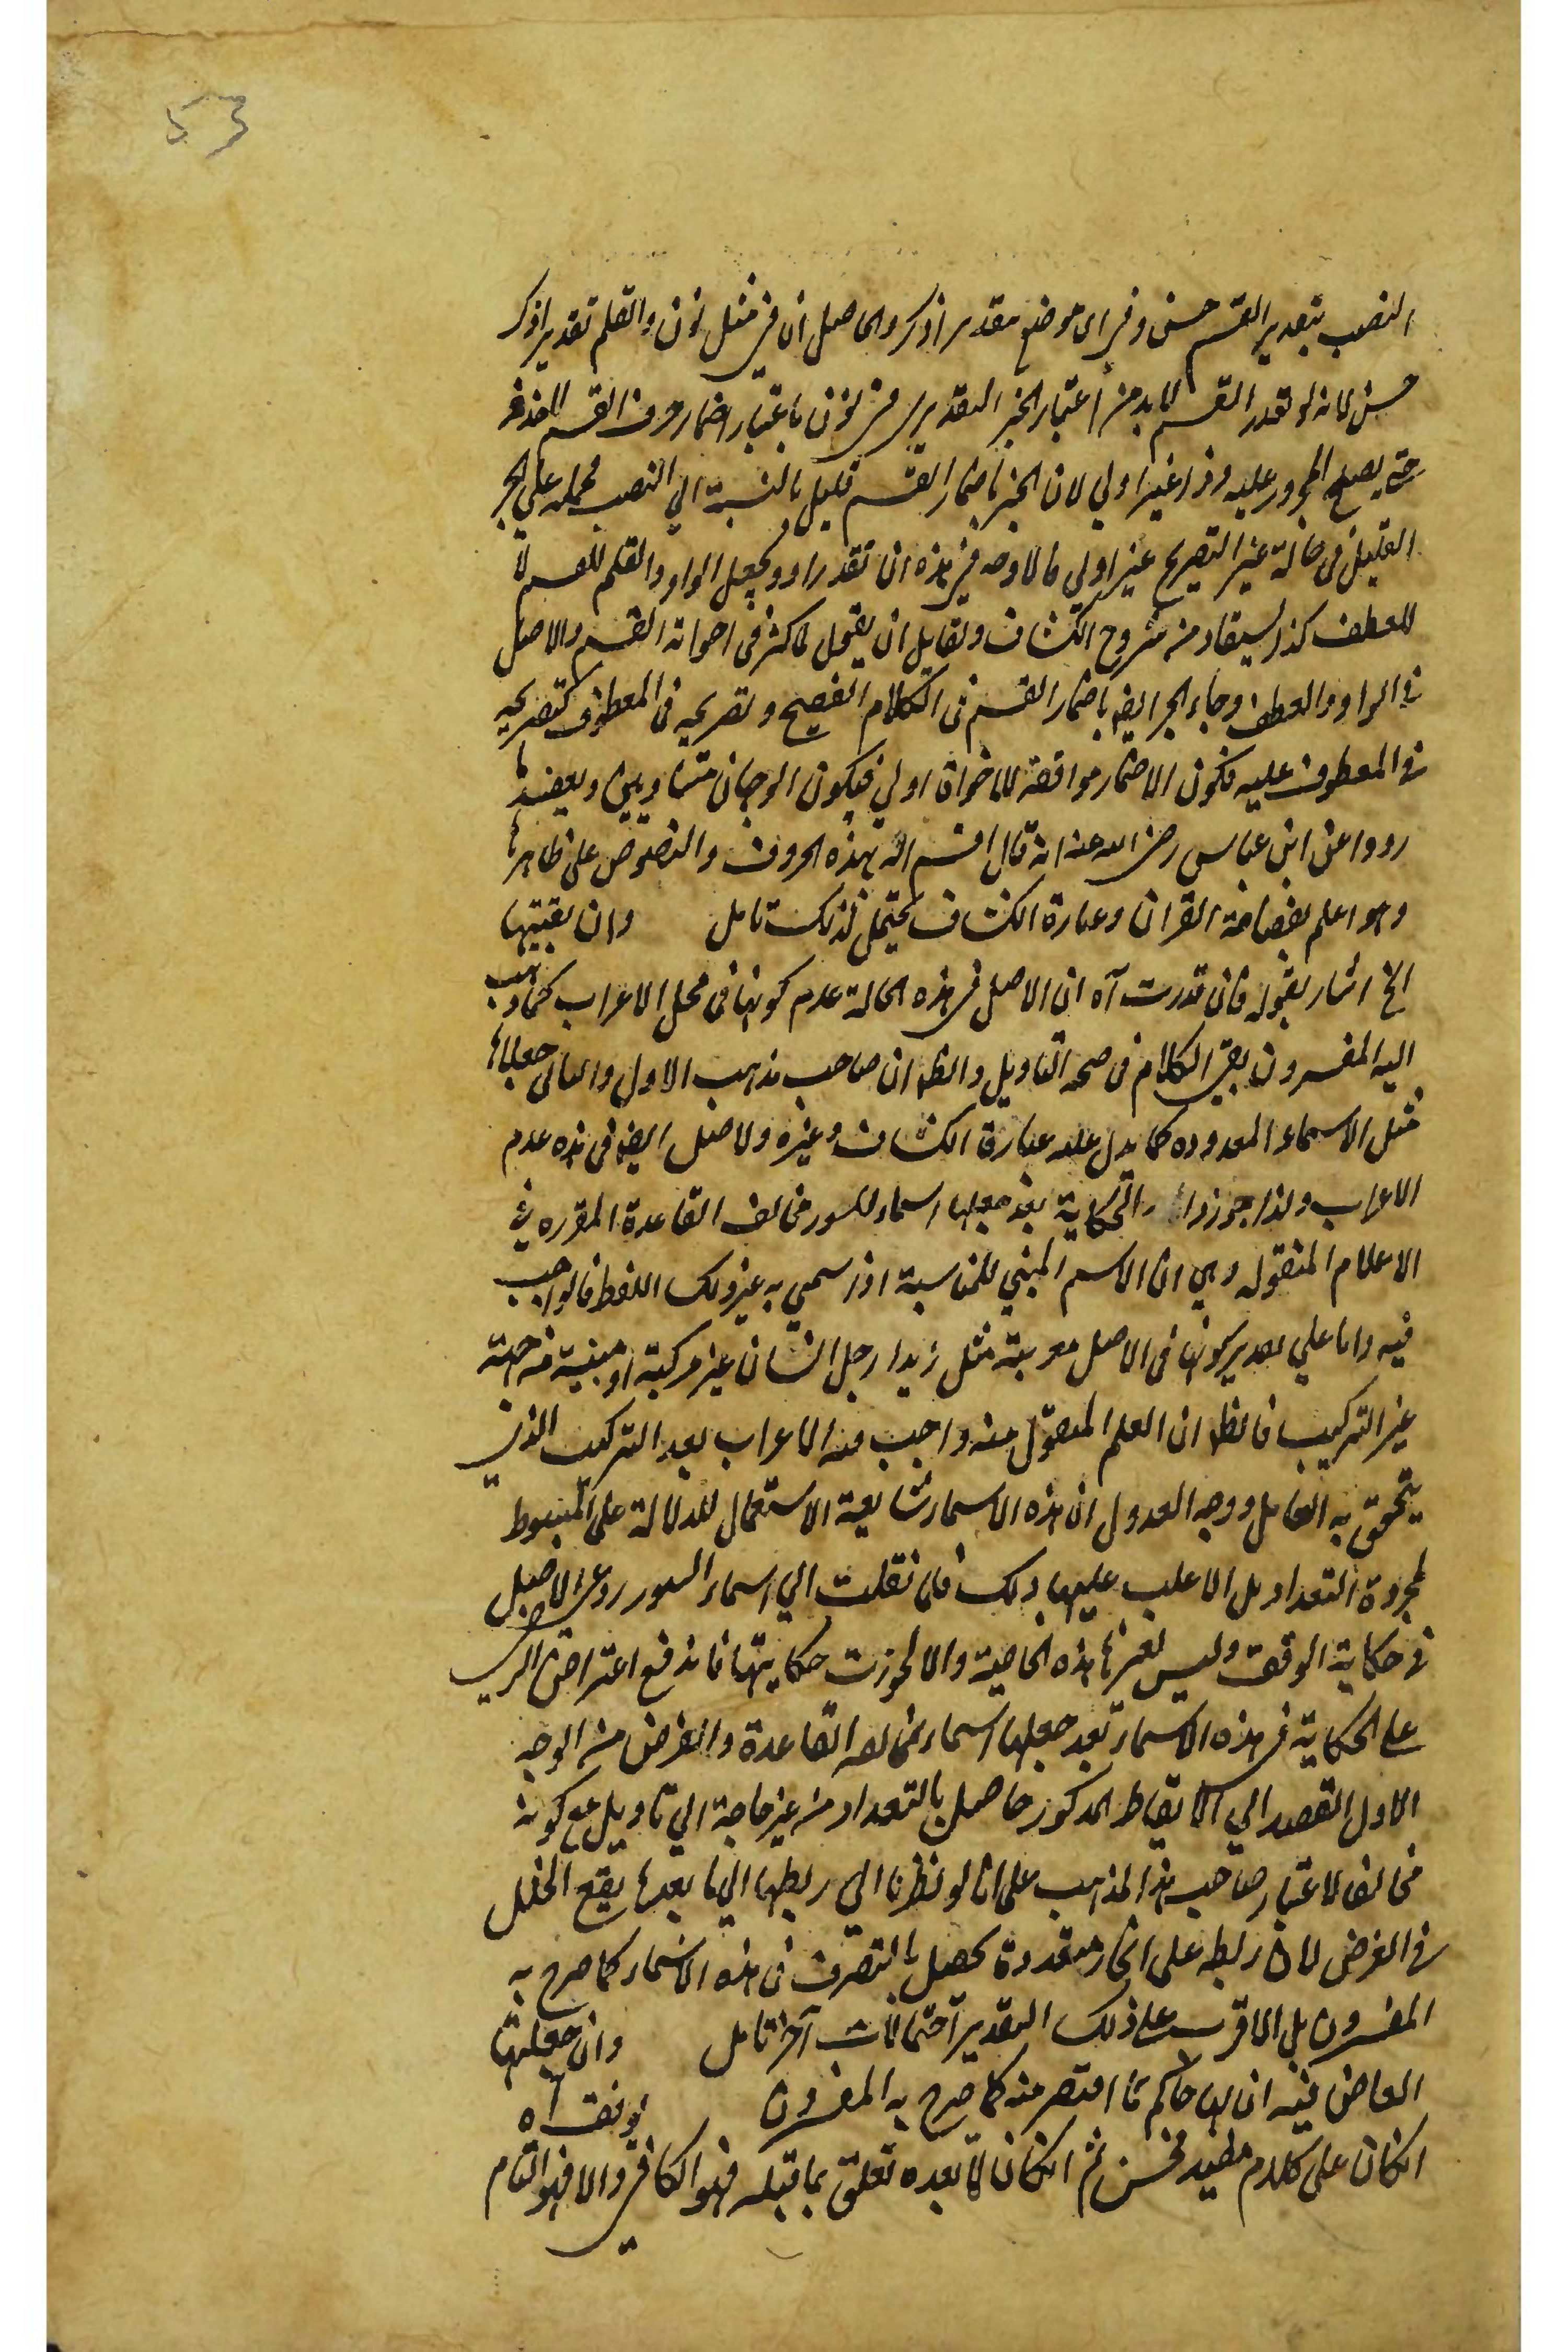 53
النصب بتقدير القسم حسن وفي اى موضع يقدر اذكر والحاصل ان في مثل نون والقلم تقدير اذكر
حسن لانه لو تقدر القسم لا بد من اعتبار الجر التقديرى في نون باعتبار اضمار حرف القسم
حتى يصلح المجرور عليه وذا غير اولي لان الجر باضمار القسم قليل بالنسبة الي النصب فحمله علي الجر
القليل في حالة غير التصريح غير اولي فالاوجه في هذه ان تقدر اذكر ويجعل الواو والقلم للقسم لا
للعطف كذا يستفاد من شروح الكشاف ولقايل ان يقول كما كثر في اخواته القسم والاصل
في الواو والعطف وجاء الجر ايضا باضمار القسم في الكلام الفصيح وتصريحه في المعطوف كتصريحه
في المعطوف عليه فكون الاضمار موافقة للاخواة اولي فيكون الوجهان متساويين ويعضد ما
رووا عن ابن عباس رضى الله عنه انه قال اقسم الله بهذه الحروف والنصوص على ظاهرها
وهو اعلم بفصاحة القران وعبارة الكشاف يحتمل لذلك تامل وان بقيتها
الخ اشار بقوله فان قدرت آه ان الاصل في هذه الحالة عدم كونها في محل الاعراب كما ذهب
اليه المفسرون بقى الكلام في صحة التاويل والظ ان صاحب مذهب الاول والثانى جعلاها
مثل الاسماء المعدوده كما يدل عليه عبارة الكشاف وغيره والاصل ايضا في هذه عدم
الاعراب ولذا جوزوا الحكاية بعد جعلها اسماء للسور مخالف القاعدة المقرره في
الاعلام المنقوله وهي ان الاسم المبني للمناسبة اذا سمي به غير ذلك اللفظ فالواجب
فيه واما علي تقدير كونها في الاصل معربة مثل زيد ارجل انسان غير مركبة او مبنية من جهة
غير التركيب فالظ ان العلم المنقول منه واجب فيه الاعراب بعد التركيب الذي
يتحقق به العامل ووجه العدول ان هذه الاسماء شايعة الاستعمال للدلالة على المبسوط
لمجردة التعداد بل الاغلب عليها ذلك فان نقلت الي اسماء السور روعى الاصل
في حكاية الوقف وليس لغيرها هذه الخاصية والا لجوزت حكايتها فاندفع اعتراض الرضى
على الحكاية في هذه الاسماء بعد جعلها اسماء بمخالفة القاعدة والغرض من الوجه
الاول القصد الي الايقاظ المذكور حاصل بالتعداد من غير حاجة الي تاويل مع كونه
مخالفا لاعتبار صاحب هذا المذهب على انا لو نظرنا الى ربطها الي ما بعدها يقع الخلل
في الغرض لان ربطه على انحاء متعددة يحصل بالتصرف في هذه الاسماء كما صرح به
المفسرون بل الاقرب على ذلك التقدير احتمالات آخر تامل وان جعلتها
القاضى فيه ان لها حاكم ما اقتصر منه كما صرح به المفسرون يوقف آه
انكان على كلام مفيد فحسن ثم انكان لما بعده تعلق بما قبله فهو الكافى والا فهو التام